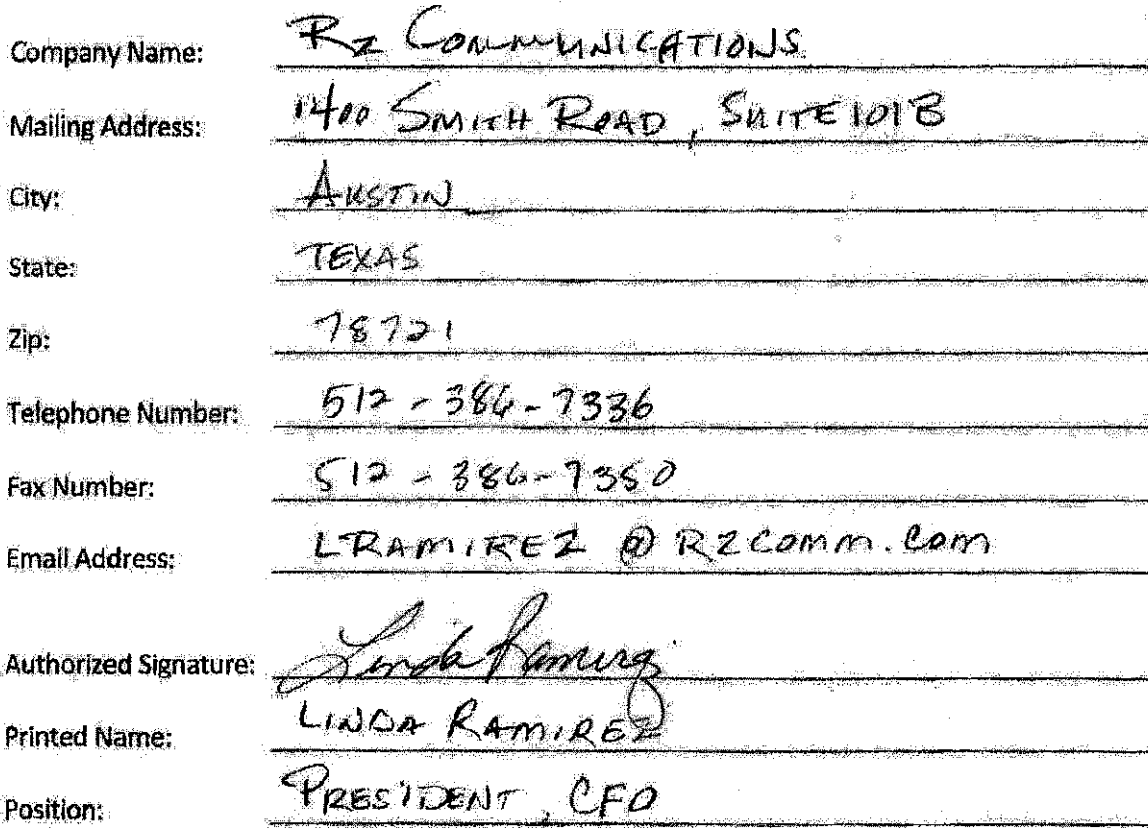 Company Name: Rz Communications
Mailing Address: 1400 Smith Road, Suite 101B
City: Austin
State: Texas
Zip: 78721
Telephone Number: 512-386-7336
Fax Number: 512-386-7350
Email Address: LRAMIREZ @ RZCOMM.COM
Authorized Signature: Linda Ramirez
Printed Name: LINDA RAMIREZ
Position: PRESIDENT, CFO